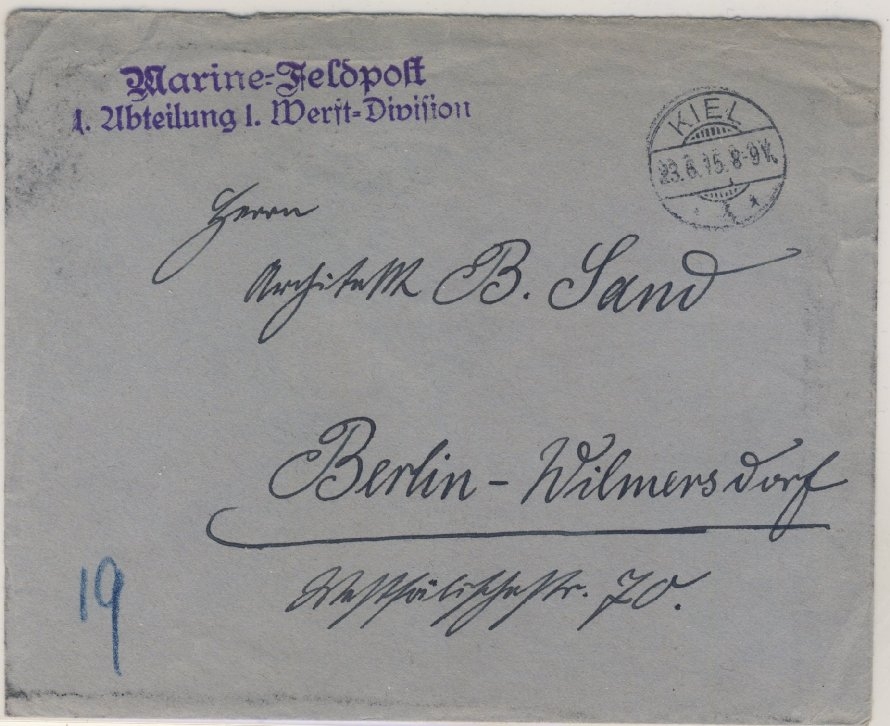 Marine-Feldpost
1. Abteilung 1. Werft-Division
KIEL
23.6.15. 8-9V.
Herrn
Architekt B. Sand
Berlin-Wilmersdorf
Westfälischestr. 70.
19